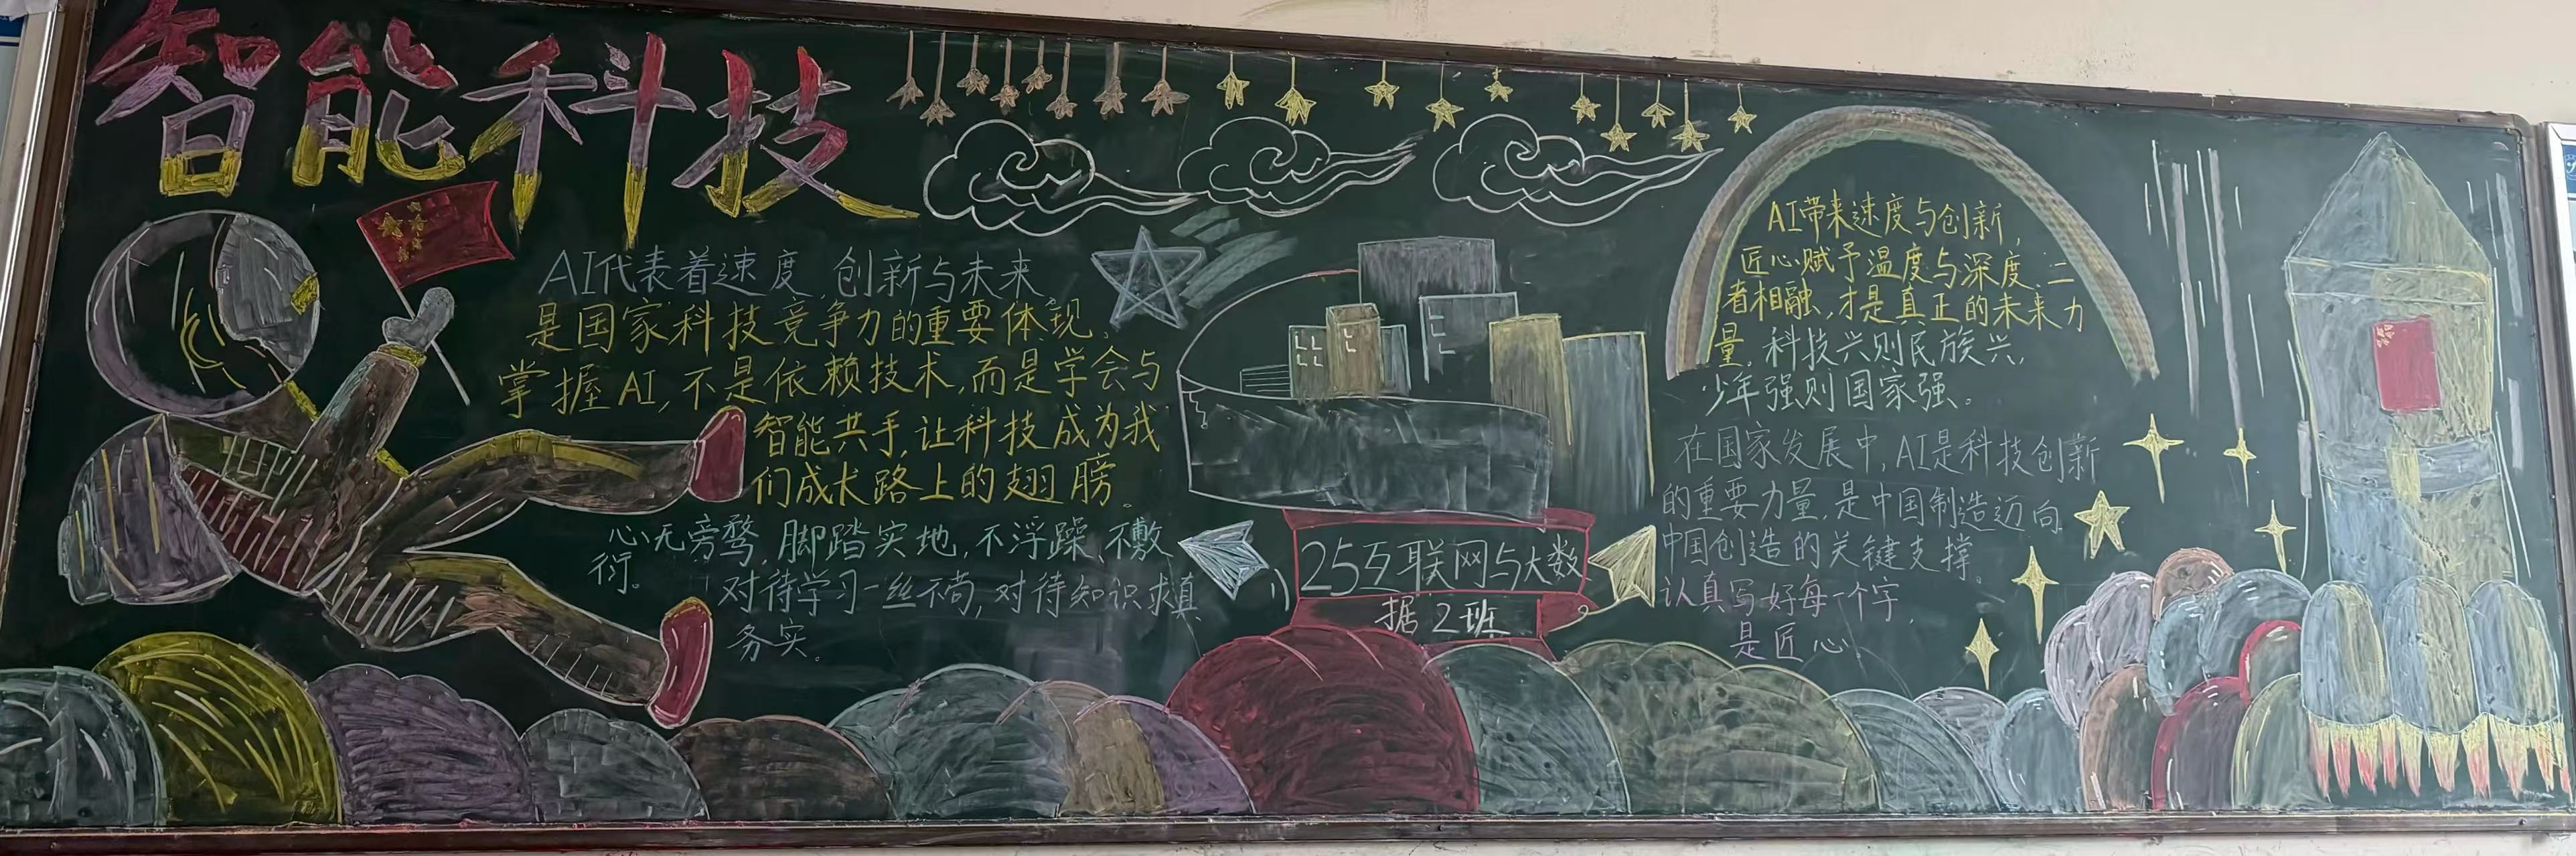 智能科技
AI代表着速度,创新与未来
是国家科技竞争力的重要体现。
掌握AI,不是依赖技术,而是学会与
智能共手,让科技成为我
们成长路上的翅膀。
心无旁骛,脚踏实地,不浮躁、不敷
衍。
对待学习一丝不苟,对待知识求真
务实。
25互联网与大数
据2班
AI带来速度与创新,
匠心赋予温度与深度,二
者相融,才是真正的未来力
量,科技兴则民族兴,
少年强则国家强。
在国家发展中,AI是科技创新
的重要力量,是中国制造迈向
中国创造的关键支撑。
认真写好每一个字,
是匠心